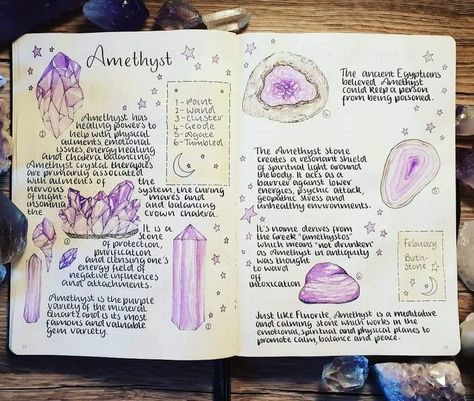 Amethyst
1 - Point
2 - Wand
3 - Cluster
4 - Geode
5 - Agate
6 - Tumbled
Amethyst has
healing powers to
help with physical
ailments, emotional
issues, energy healing
and chakra balancing.
Amethyst crystal therapies
are primarily associated
with ailments of the
nervous system, the curing
of night mares and
insomnia and balancing
the crown chakra.
It is a
stone
of protection,
purification
and cleansing one's
energy field of
negative influences
and attachments.
Amethyst is the purple
variety of the mineral
Quartz and is its most
famous and valuable
gem variety.
The ancient Egyptians
believed Amethyst
could keep a person
from being poisoned.
The Amethyst Stone
creates a resonant shield
of spiritual light around
the body. It acts as a
barrier against lower
energies, psychic attack,
geopathic stress and
unhealthy environments.
It's name derives from
the Greek "amethystos"
which means "not drunken"
as Amethyst in antiquity
was thought
to ward
off
intoxication
February
Birth-
Stone
Just like Fluorite, Amethyst is a meditative
and calming stone which works in the
emotional, spiritual and physical planes to
promote calm, balance and peace.